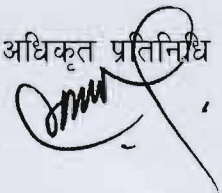 अधिकृत प्रतिनिधि